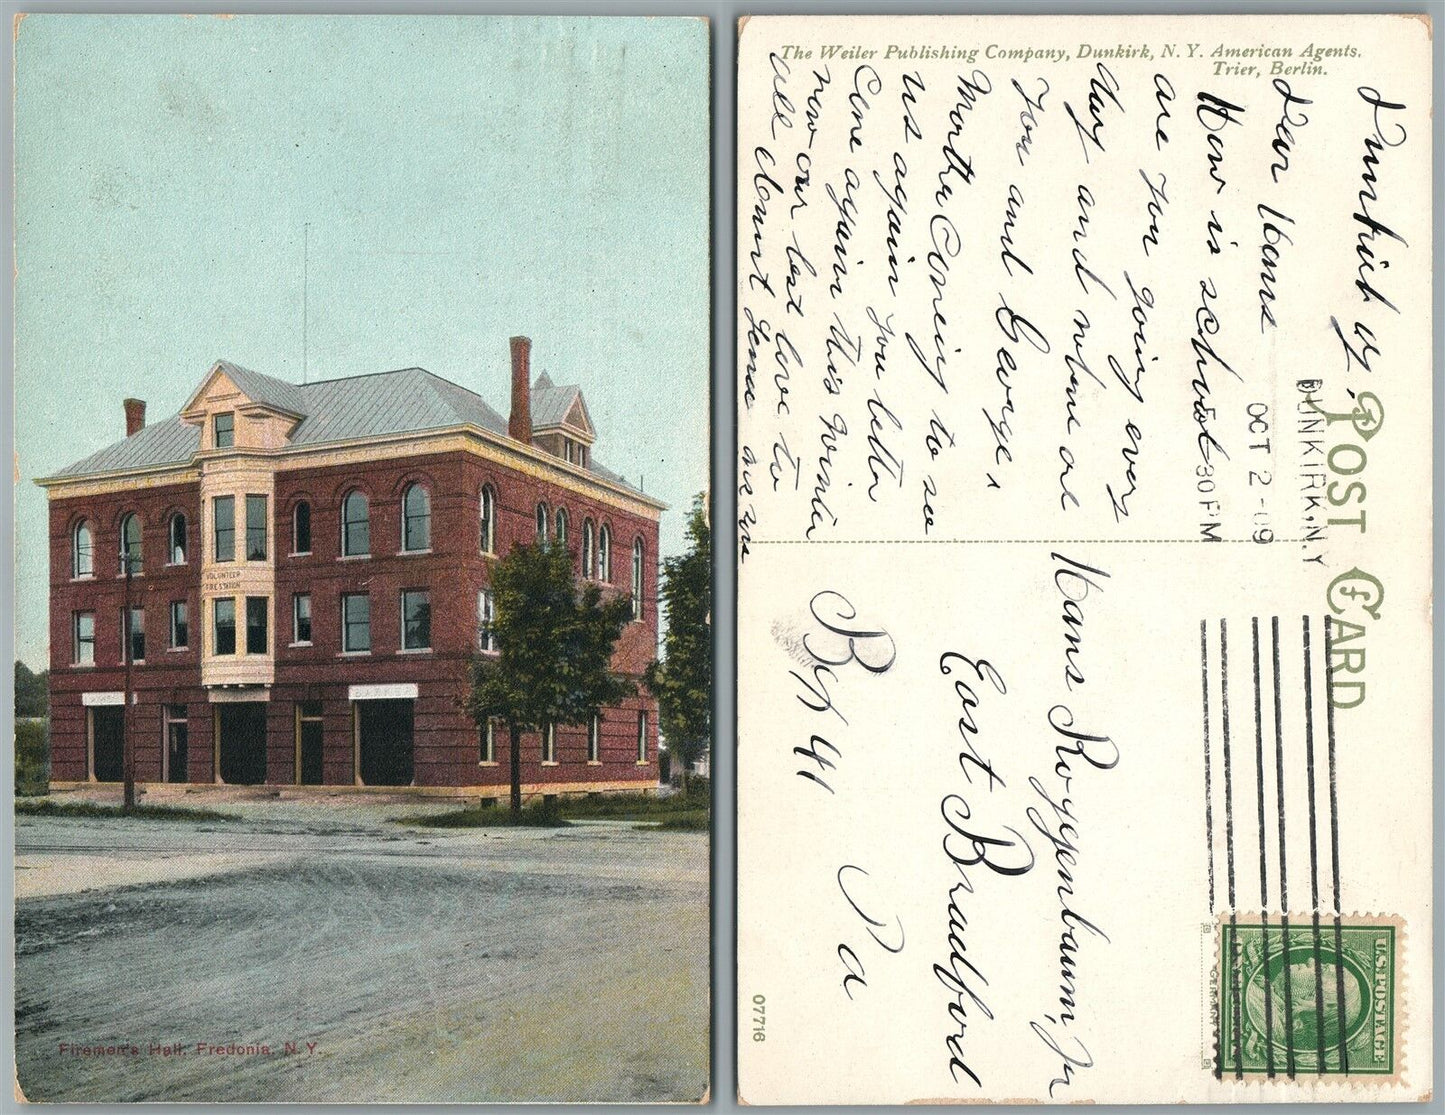 VOLUNTEER
FIRE STATION
BARKER
Firemen's Hall, Fredonia, N. Y.
The Weiler Publishing Company, Dunkirk, N. Y. American Agents.
Trier, Berlin.
POST CARD
DUNKIRK, N.Y
OCT 2 - 09
5 - 30 PM
Dunkirk N. Y.
Dear Hans
How is school
are you going every
day and when are
you and George,
Mother Coming to see
us again you better
Come again this Winter
now our best love to
all Aunt
Hans Roggenbaum, Jr
East Bradford
BX 41 Pa
U.S. POSTAGE
07716